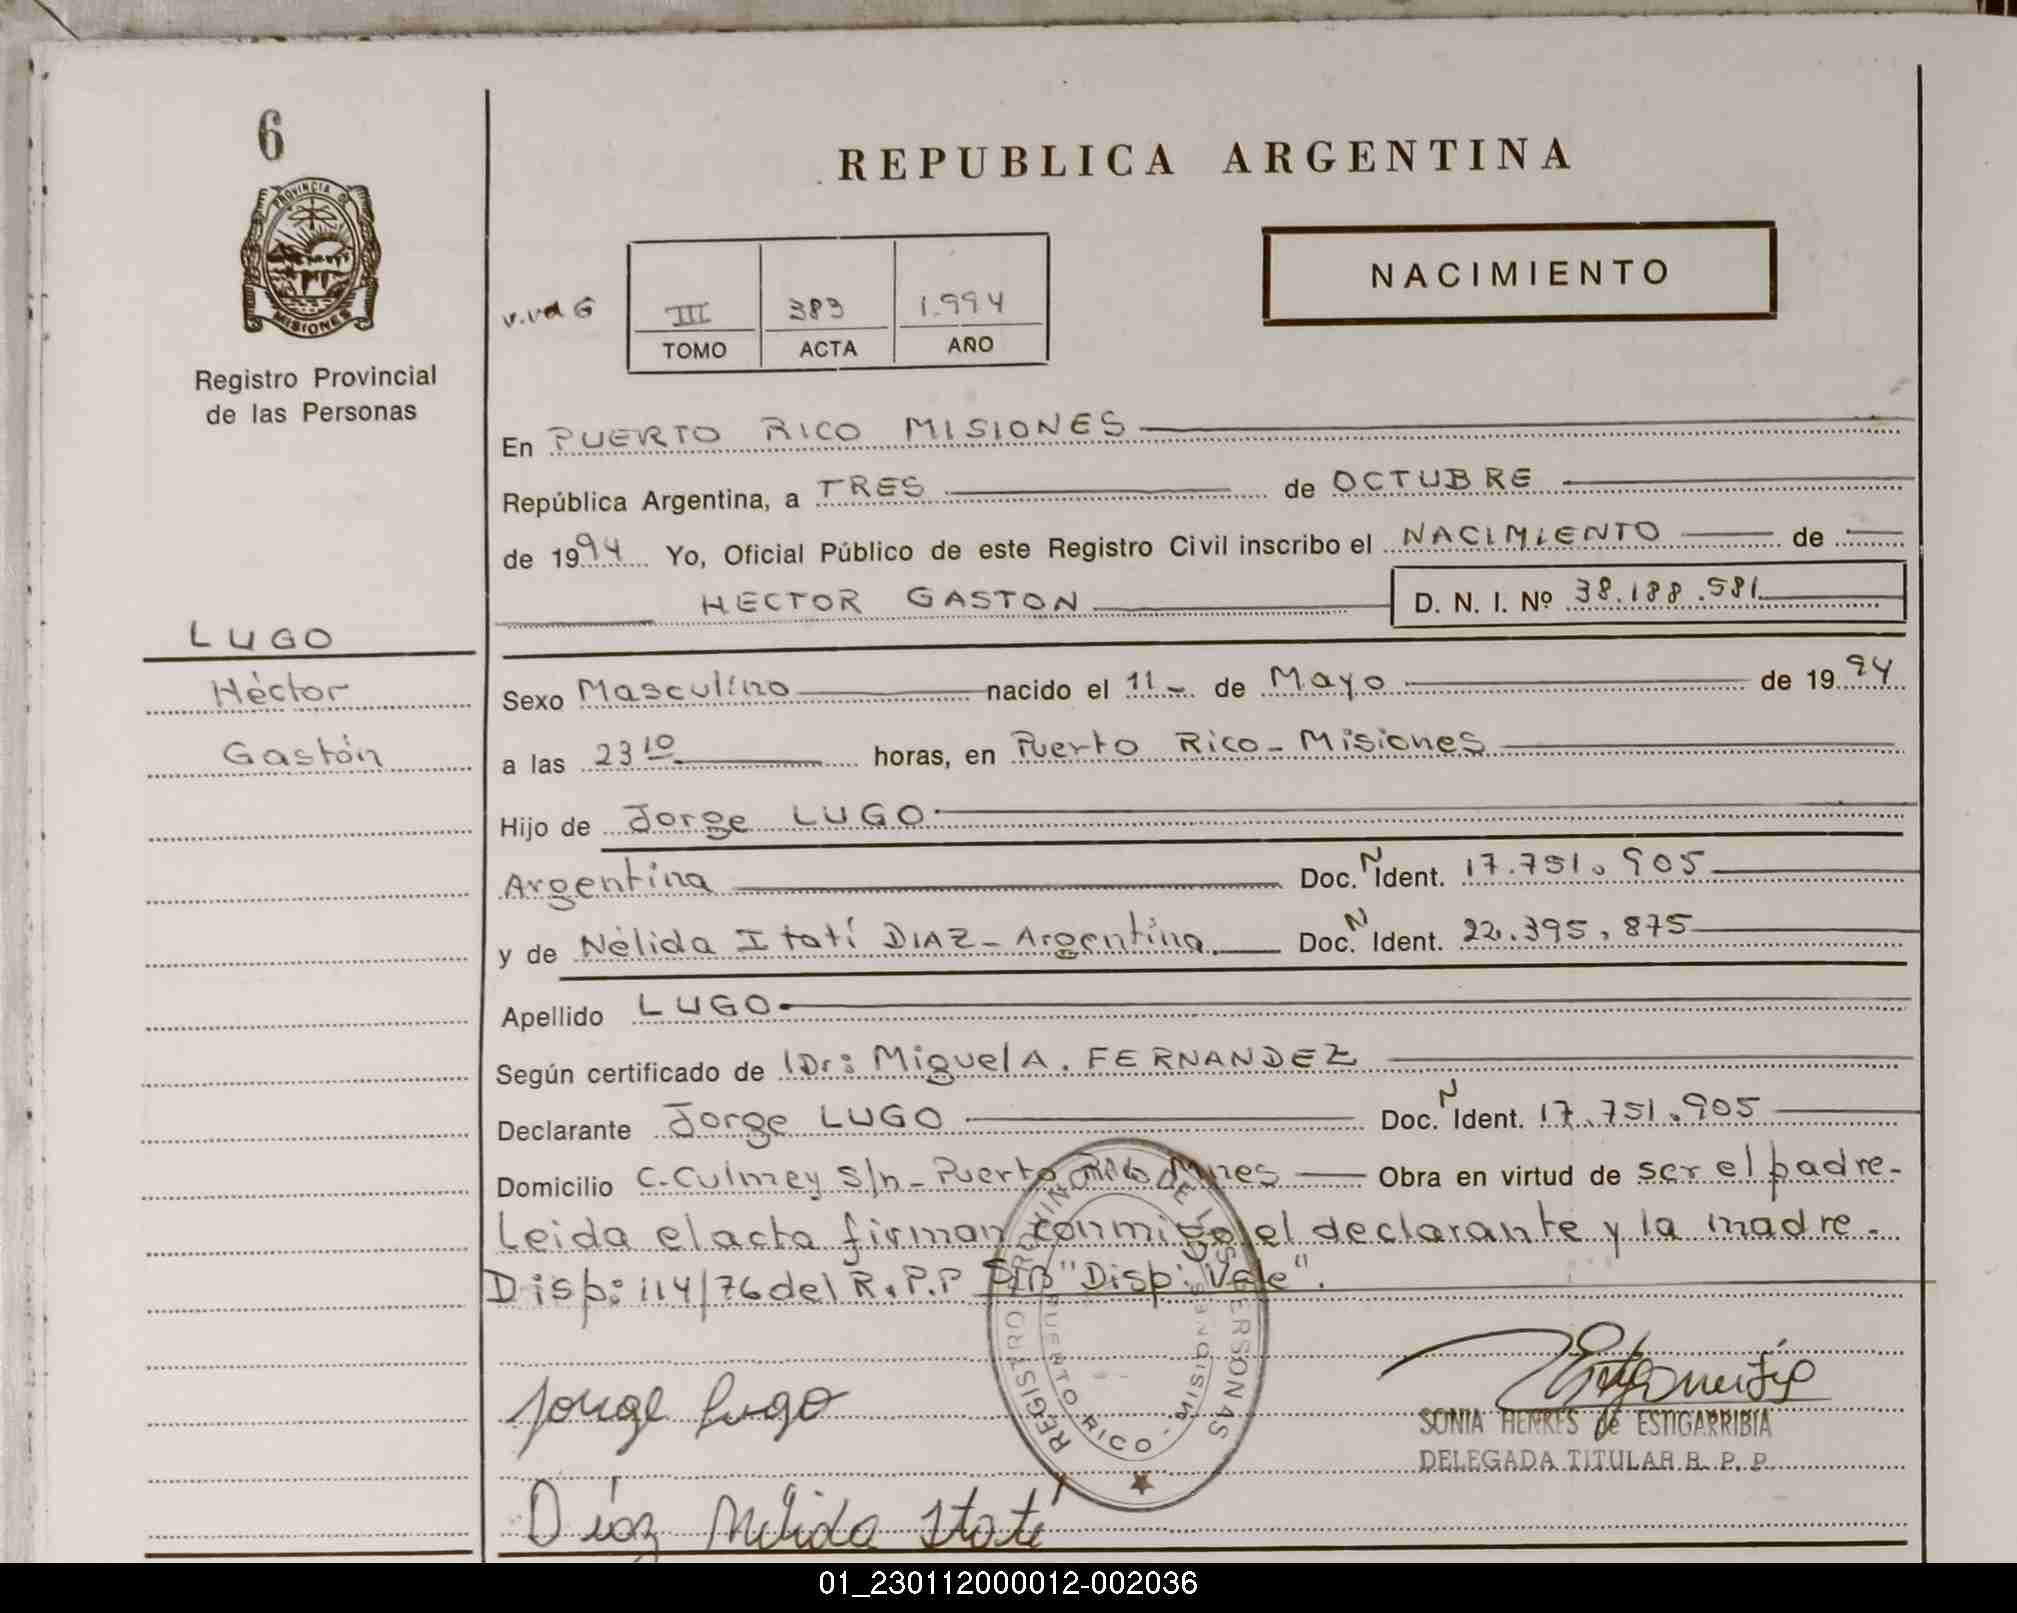 6
PROVINCIA DE
MISIONES
Registro Provincial
de las Personas
REPUBLICA ARGENTINA
NACIMIENTO
III 383 1.994
TOMO ACTA AÑO
En PUERTO RICO MISIONES
República Argentina, a TRES de OCTUBRE
de 1994 Yo, Oficial Público de este Registro Civil inscribo el NACIMIENTO de
HECTOR GASTON D. N. I. Nº 38.188.581
LUGO
Héctor
Gastón
Sexo Masculino nacido el 11- de Mayo de 1994
a las 23 10 horas, en Puerto Rico - Misiones
Hijo de Jorge LUGO
Argentina Doc. N Ident. 17.751.905
y de Nélida Itatí DIAZ - Argentina. Doc. N Ident. 22.395.875
Apellido LUGO
Según certificado de Dr: Miguel A. FERNANDEZ
Declarante Jorge LUGO Doc. N Ident. 17.751.905
Domicilio C. Culmey S/n - Puerto Rico Mnes Obra en virtud de ser el padre-
Leida el acta firman conmigo el declarante y la madre.
Disp: 114/76 del R.P.P "Disp: Vale".
REGISTRO PROVINCIAL DE LAS PERSONAS
PUERTO RICO - MISIONES
Jorge Lugo
SONIA HENKES de ESTIGARRIBIA
DELEGADA TITULAR R. P. P.
Díaz Nélida Itatí
01_230112000012-002036